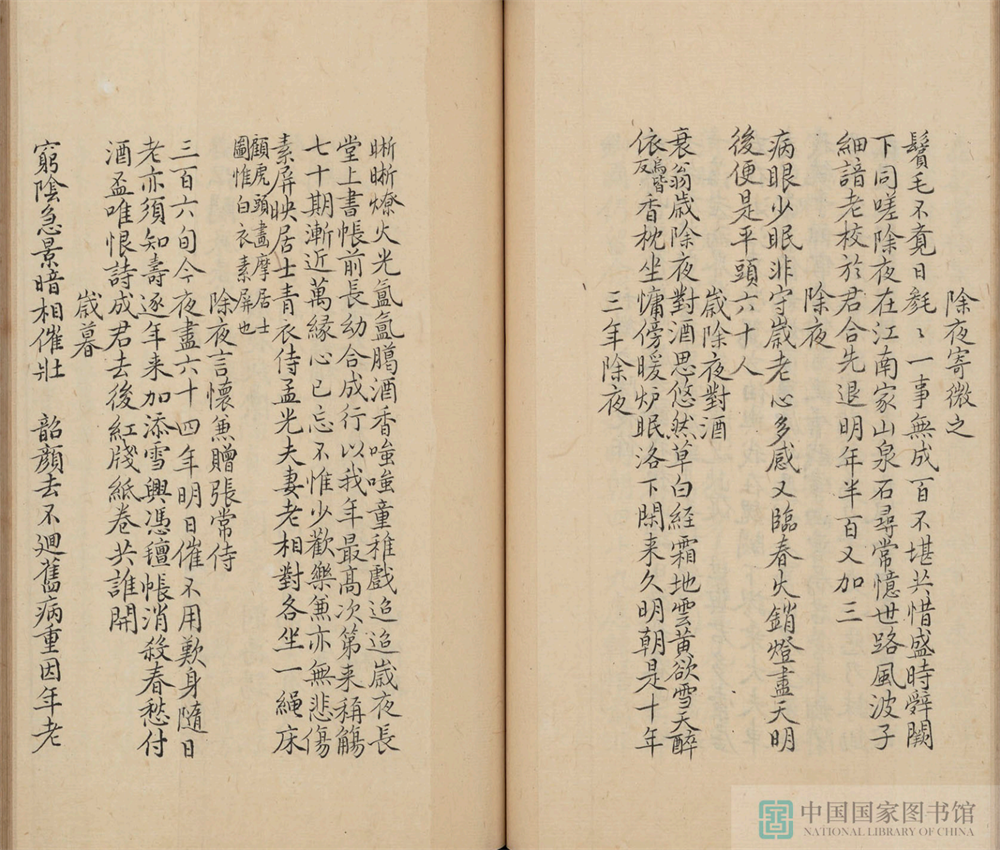 除夜寄微之
鬢毛不覺日毿〻一事無成百不堪共惜盛時辭闕
下同嗟除夜在江南家山泉石尋常憶世路風波子
細諳老校於君合先退明年半百又加三
除夜
病眼少眠非守歲老心多感又臨春火銷燈盡天明
後便是平頭六十人
歲除夜對酒
衰翁歲除夜對酒思悠然草白經霜地雲黃欲雪天醉
依烏皆反香枕坐慵傍暖炉眠洛下閑来久明朝是十年
三年除夜
晣晣燎火光氲氲臈酒香嗤嗤童稚戲迢迢歲夜長
堂上書帳前長幼合成行以我年最高次第来稱觴
七十期漸近萬縁心已忘不惟少歡樂兼亦無悲傷
素屏映居士青衣侍孟光夫妻老相對各坐一繩床
顧虎頭畫摩居士
圖惟白衣素屏也
除夜言懷兼贈張常侍
三百六旬今夜盡六十四年明日催不用歎身隨日
老亦須知壽逐年来加添雪興憑氊帳消殺春愁付
酒盃唯恨詩成君去後紅牋紙卷共誰開
歲暮
窮陰急景暗相催壯 韶顏去不迴舊病重因年老
中国国家图书馆
NATIONAL LIBRARY OF CHINA